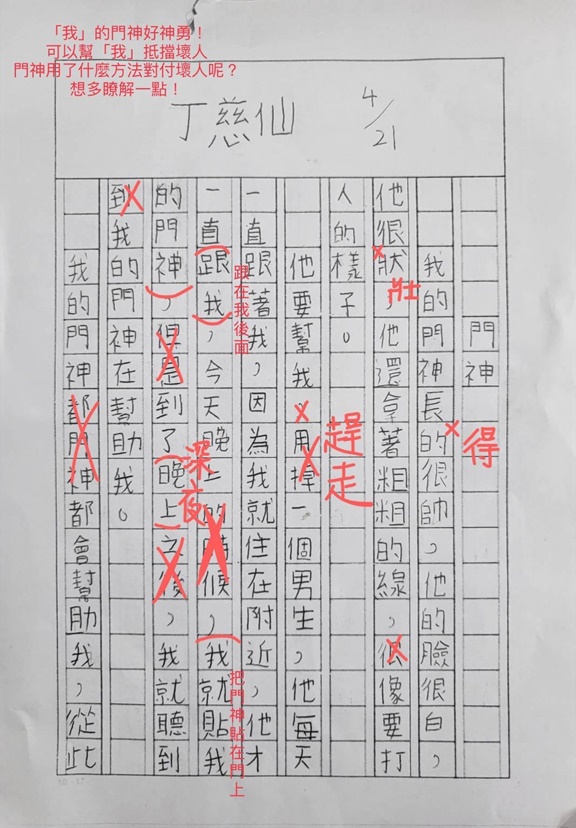 「我」的門神好神勇！
可以幫「我」抵擋壞人
門神用了什麼方法對付壞人呢？
想多瞭解一點！
丁慈仙
4/21
門神
我的門神長的很帥，他的臉很白，
得
他很狀，他還拿著粗粗的線，很像要打
壯
人的樣子。
他要幫我用捍一個男生，他每天
趕走
一直跟著我，因為我就住在附近，他才
一直跟我，今天晚上的時候，我就貼我
跟在我後面
把門神貼在門上
的門神，但是到了晚上之後，我就聽到
深夜
到我的門神在幫助我。
我的門神都門神都會幫助我，從此